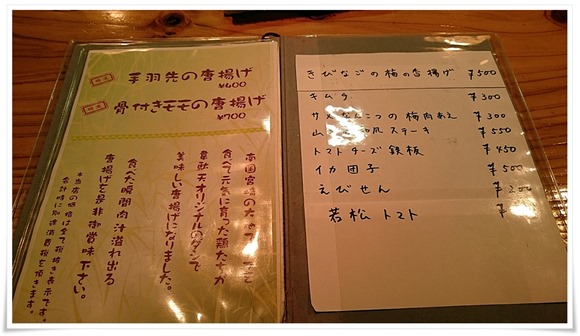 手羽先の唐揚げ
¥600
骨付きモモの唐揚げ
¥700
南国宮崎の
食べて元気に育った鶏たちが
韋駄天オリジナルのダシで
美味しい唐揚げになりました。
食べた瞬間肉汁溢れ出る
唐揚げを是非御賞味下さい。
本当店の価格は全て税抜き表示です。
会計時に別途消費税を頂きます。
きびなごの梅の唐揚げ ¥500
キムチ ¥300
サメなんこつの梅肉あえ ¥300
山 和風ステーキ ¥550
トマトチーズ鉄板 ¥450
イカ団子 ¥500
えびせん ¥200
若松トマト ¥